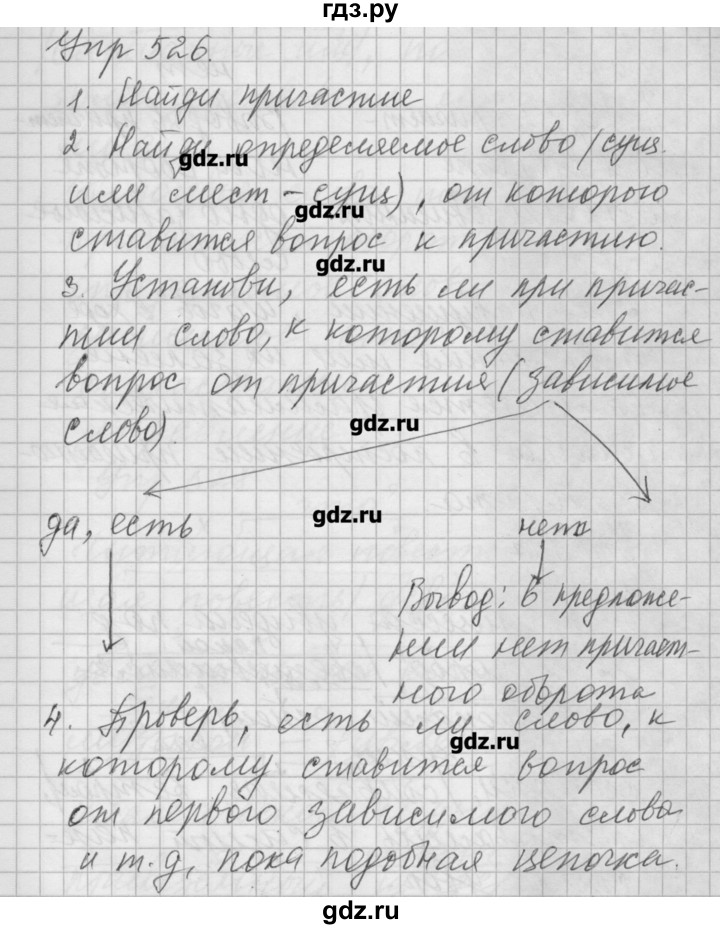 гдз.ру
Упр 526.
1. Найди причастие
2. Найди определяемое слово (сущ.
gdz.ru
или мест-сущ), от которого
gdz.ru
ставится вопрос к причастию.
gdz.ru
3. Установи, есть ли при причас-
тии слово, к которому ставится
вопрос от причастия (зависимое
слово).
gdz.ru
gdz.ru
да, есть нет
Вывод: в предложе-
нии нет причаст-
ного оборота
4. Проверь, есть ли слово, к
gdz.ru
которому ставится вопрос
от первого зависимого слова
и т.д, пока подобная цепочка.
gdz.ru